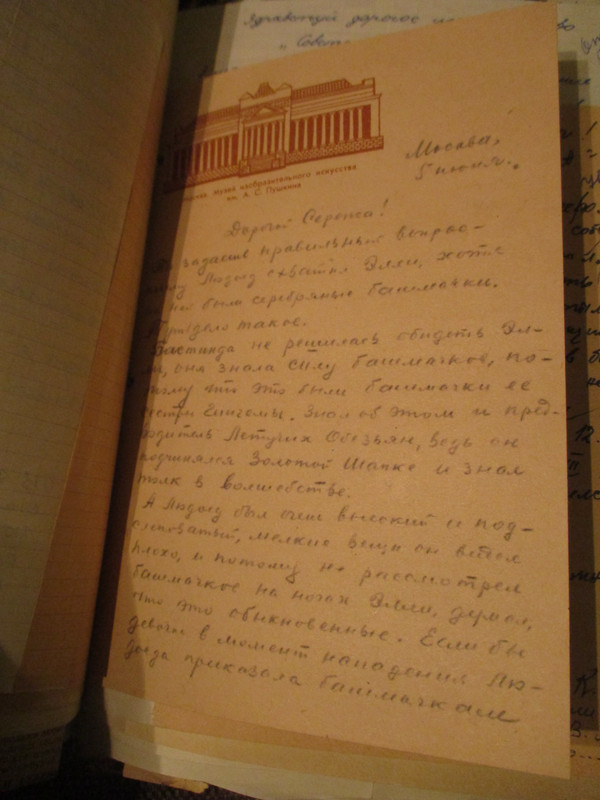 Здравствуй дорогое
"Совет
Музей изобразительного искусства
им. А. С. Пушкина
Москва,
5 июля.
Дорогой Сережа!
задаешь правильный вопрос
Людоед схватил Элли, хотя
ней были серебряные башмачки.
дело такое.
Бастинда не решилась обидеть Эл-
ли, она знала силу башмачков, по-
тому что это были башмачки ее
сестры Гингемы. Знал об этом и пред-
водитель Летучих Обезьян, ведь он
подчинялся Золотой Шапке и знал
толк в волшебстве.
А Людоед был очень высокий и под-
слеповатый, мелкие вещи он видел
плохо, и потому не рассмотрел
башмачков на ногах Элли, думал,
что это обыкновенные. Если бы
девочка в момент нападения Лю-
доеда приказала башмачкам